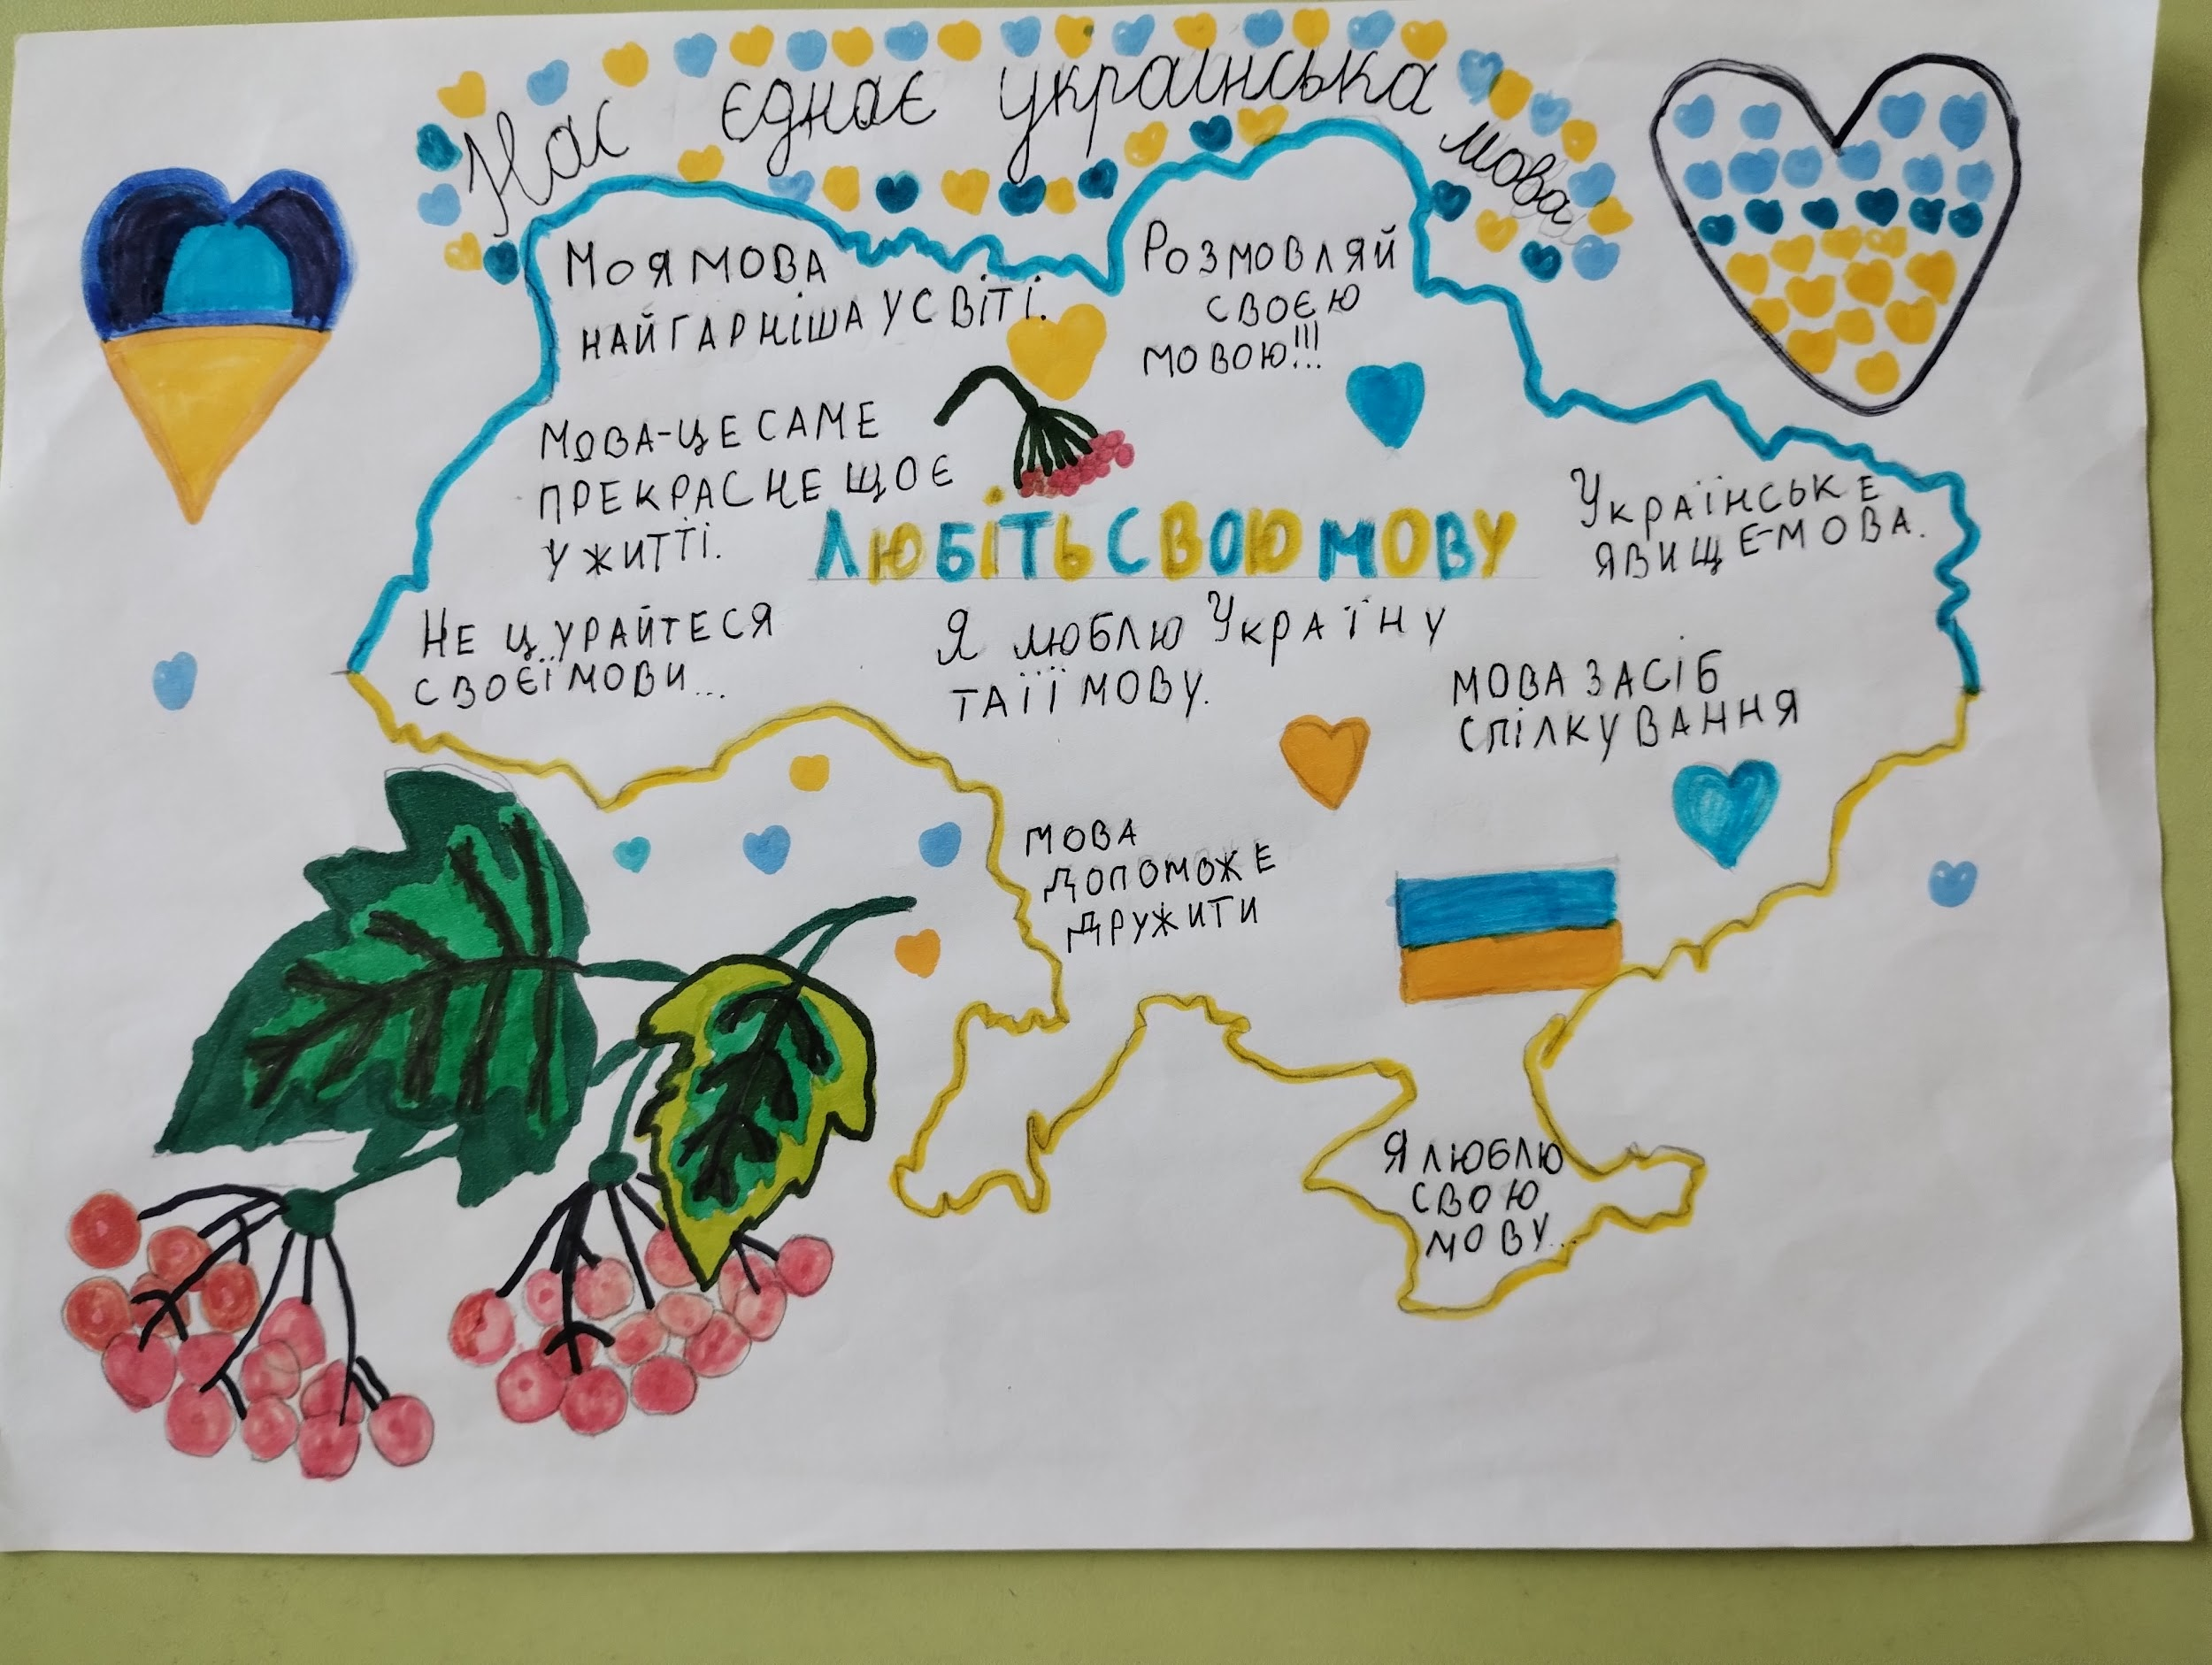 Нас єднає українська мова
Моя мова
найгарніша у світі.
Розмовляй
своєю
мовою!!!
Мова-це саме
прекрасне що є
у житті.
Любіть свою мову
Українське
явище-мова.
Не цурайтеся
своєї мови...
Я люблю Україну
та її мову.
Мова засіб
спілкування
Мова
допоможе
дружити
Я люблю
свою
мову...